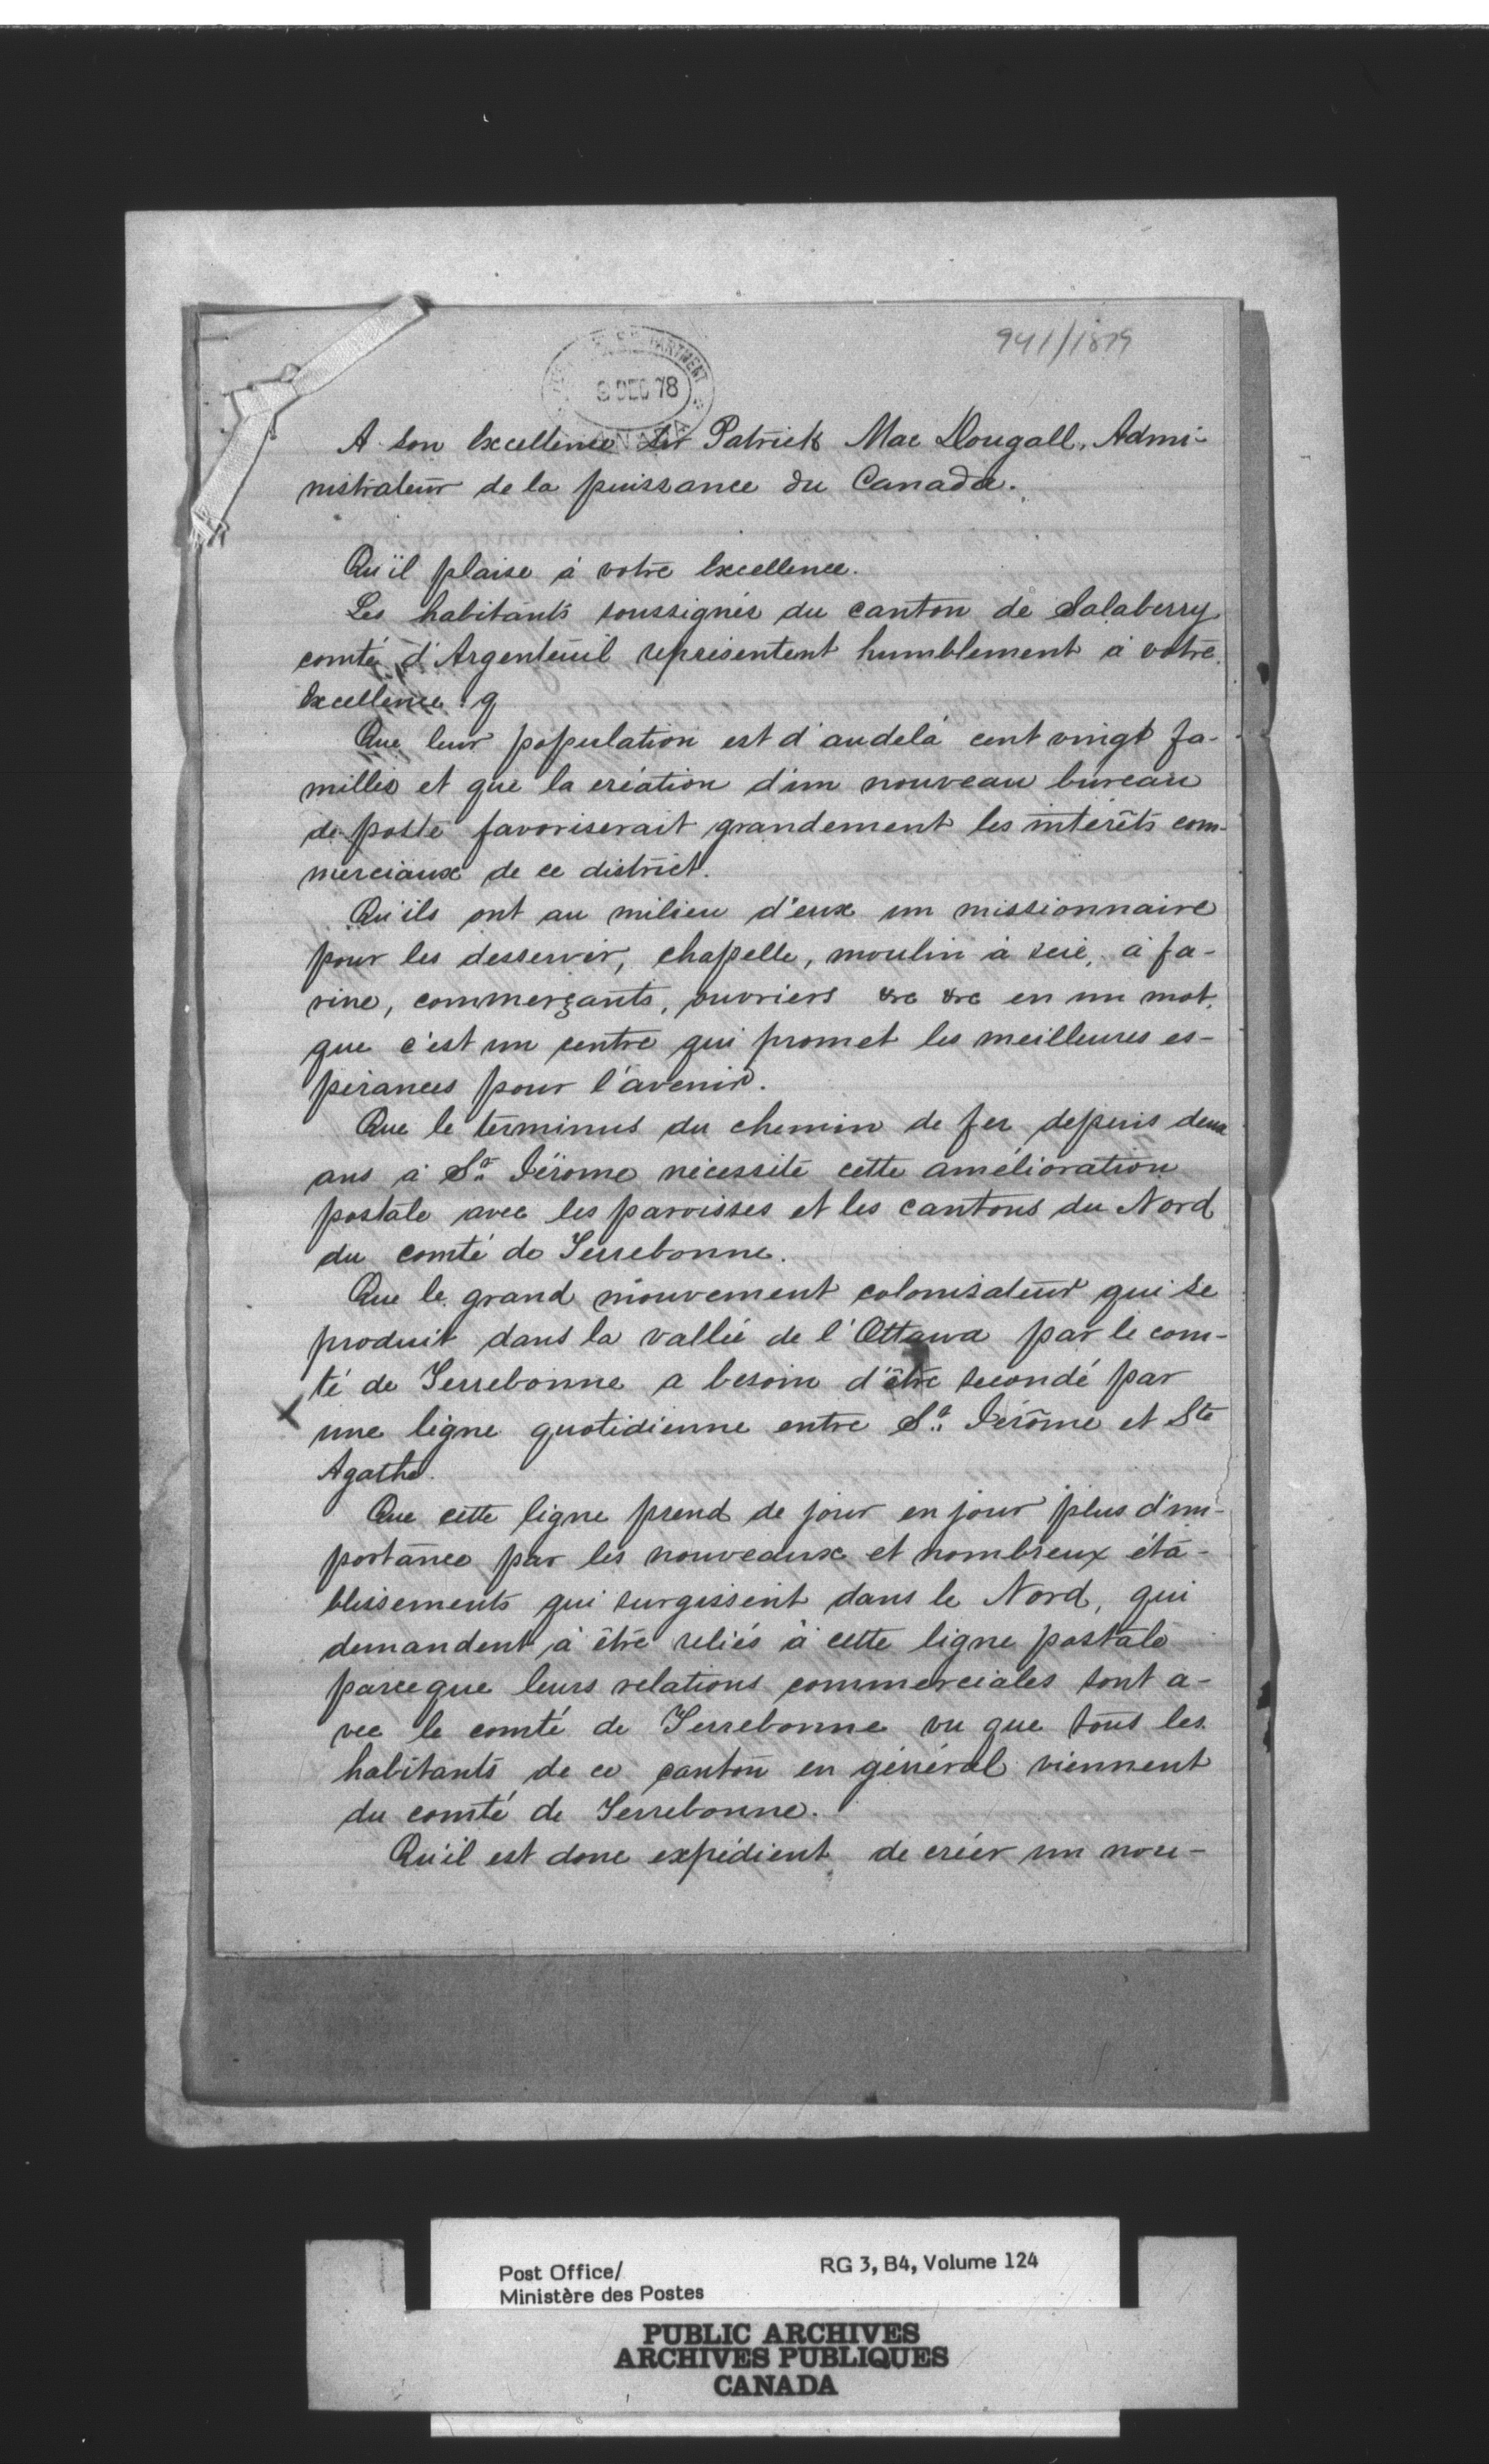 941/1879
DEPARTMENT
9 DEC 78
CANADA
A son Excellence Sir Patrick Mac Dougall, Admi-
nistrateur de la puissance du Canada.
Qu'il plaise à votre Excellence.
Les habitants soussignés du canton de Salaberry
comté d'Argenteuil représentent humblement à votre
Excellence : q
Que leur population est d'audelà cent vingt fa-
milles et que la création d'un nouveau bureau
de poste favoriserait grandement les intérêts com-
merciaux de ce district.
Qu'ils ont au milieu d'eux un missionnaire
pour les desservir, chapelle, moulin à scie, à fa-
rine, commerçants, ouvriers &c &c en un mot,
que c'est un centre qui promet les meilleures es-
pérances pour l'avenir.
Que le terminus du chemin de fer depuis deux
ans à St. Jérome nécessite cette amélioration
postale avec les paroisses et les cantons du Nord
du comté de Terrebonne.
Que le grand mouvement colonisateur qui se
produit dans la vallée de l'Ottawa par le com-
té de Terrebonne a besoin d'être secondé par
x une ligne quotidienne entre St. Jérôme et Ste
Agathe.
Que cette ligne prend de jour en jour plus d'im-
portance par les nouveaux et nombreux éta-
blissements qui surgissent dans le Nord, qui
demandent à être reliés à cette ligne postale
parceque leurs relations commerciales sont a-
vec le comté de Terrebonne vu que tous les
habitants de ce canton en général viennent
du comté de Terrebonne.
Qu'il est donc expédient de créer un nou-
Post Office/
Ministère des Postes
RG 3, B4, Volume 124
PUBLIC ARCHIVES
ARCHIVES PUBLIQUES
CANADA